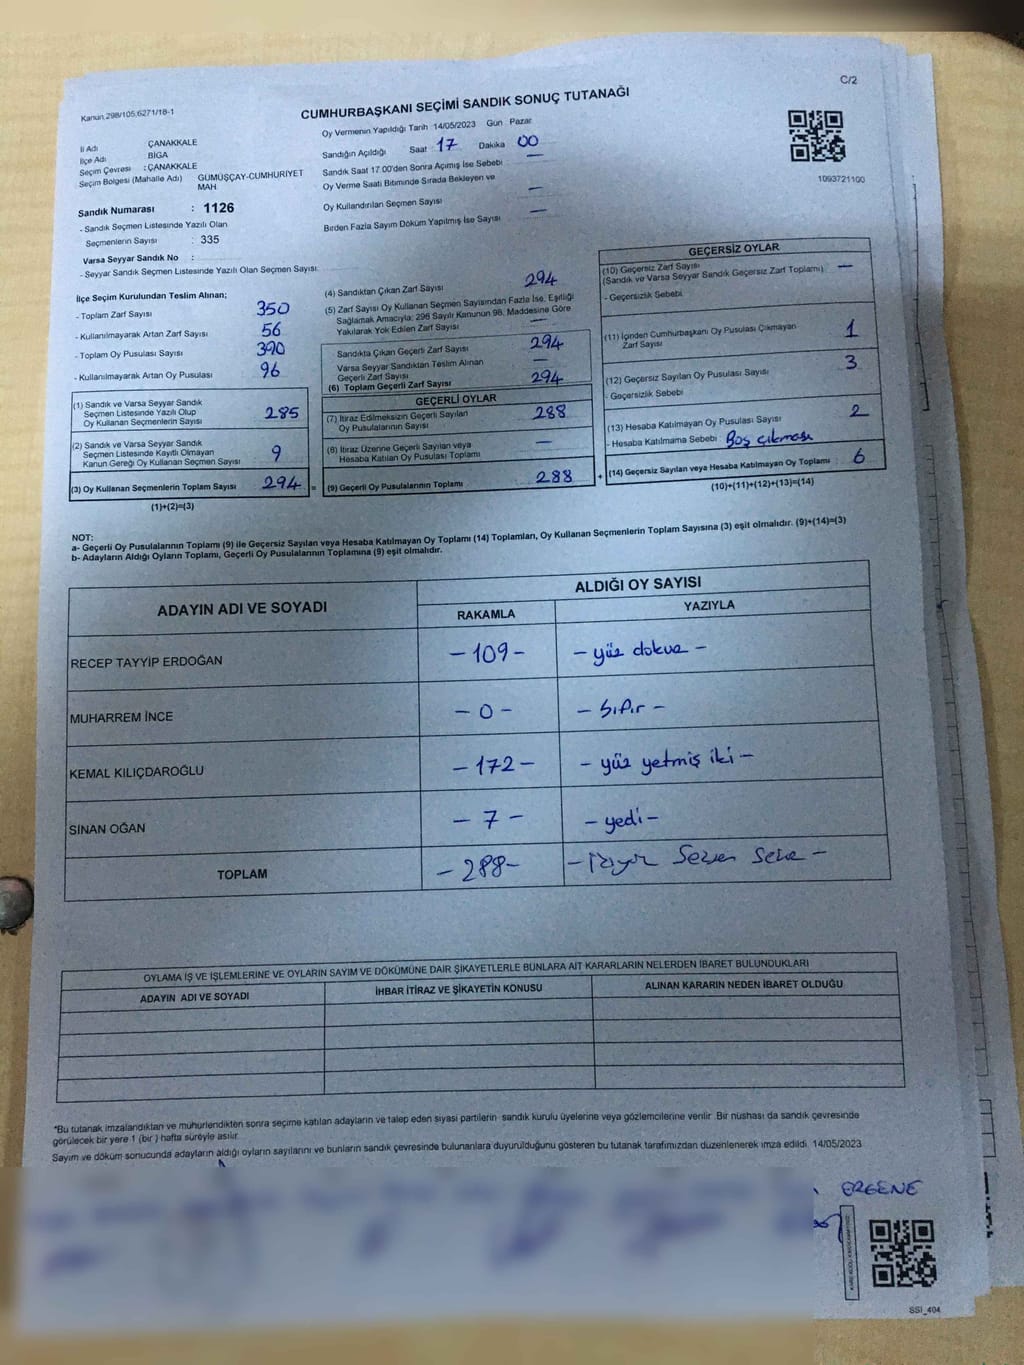 C/2
Kanun 298/105;6271/18-1
CUMHURBAŞKANI SEÇİMİ SANDIK SONUÇ TUTANAĞI
İl Adı ÇANAKKALE
İlçe Adı BİGA
Seçim Çevresi : ÇANAKKALE
Seçim Bölgesi (Mahalle Adı) GÜMÜŞÇAY-CUMHURİYET
MAH
Sandık Numarası : 1126
- Sandık Seçmen Listesinde Yazılı Olan
Seçmenlerin Sayısı : 335
Varsa Seyyar Sandık No :
- Seyyar Sandık Seçmen Listesinde Yazılı Olan Seçmen Sayısı:
Oy Vermenin Yapıldığı Tarih 14/05/2023 Gün Pazar
Sandığın Açıldığı Saat : 17 Dakika 00
Sandık Saat 17.00'den Sonra Açımış İse Sebebi —
Oy Verme Saati Bitiminde Sırada Bekleyen ve
Oy Kullandırılan Seçmen Sayısı —
Birden Fazla Sayım Döküm Yapılmış İse Sayısı —
1093721100
İlçe Seçim Kurulundan Teslim Alınan;
- Toplam Zarf Sayısı 350
- Kullanılmayarak Artan Zarf Sayısı 56
- Toplam Oy Pusulası Sayısı 390
- Kullanılmayarak Artan Oy Pusulası 96
(1) Sandık ve Varsa Seyyar Sandık
Seçmen Listesinde Yazılı Olup
Oy Kullanan Seçmenlerin Sayısı 285
(2) Sandık ve Varsa Seyyar Sandık
Seçmen Listesinde Kayıtlı Olmayan
Kanun Gereği Oy Kullanan Seçmen Sayısı 9
(3) Oy Kullanan Seçmenlerin Toplam Sayısı 294 =
(1)+(2)=(3)
(4) Sandıktan Çıkan Zarf Sayısı 294
(5) Zarf Sayısı Oy Kullanan Seçmen Sayısından Fazla İse, Eşitliği
Sağlamak Amacıyla; 298 Sayılı Kanunun 98. Maddesine Göre
Yakılarak Yok Edilen Zarf Sayısı —
Sandıkta Çıkan Geçerli Zarf Sayısı 294
Varsa Seyyar Sandıktan Teslim Alınan
Geçerli Zarf Sayısı —
(6) Toplam Geçerli Zarf Sayısı 294
GEÇERLİ OYLAR
(7) İtiraz Edilmeksizin Geçerli Sayılan
Oy Pusulasının Sayısı 288
(8) İtiraz Üzerine Geçerli Sayılan veya
Hesaba Katılan Oy Pusulası Toplamı —
(9) Geçerli Oy Pusulalarının Toplamı 288 +
GEÇERSİZ OYLAR
(10) Geçersiz Zarf Sayısı
(Sandık ve Varsa Seyyar Sandık Geçersiz Zarf Toplamı) —
- Geçersizlik Sebebi
(11) İçinden Cumhurbaşkanı Oy Pusulası Çıkmayan
Zarf Sayısı 1
(12) Geçersiz Sayılan Oy Pusulası Sayısı 3
- Geçersizlik Sebebi
(13) Hesaba Katılmayan Oy Pusulası Sayısı 2
- Hesaba Katılmama Sebebi : Boş çıkması
(14) Geçersiz Sayılan veya Hesaba Katılmayan Oy Toplamı : 6
(10)+(11)+(12)+(13)=(14)
NOT:
a- Geçerli Oy Pusulalarının Toplamı (9) ile Geçersiz Sayılan veya Hesaba Katılmayan Oy Toplamı (14) Toplamları, Oy Kullanan Seçmenlerin Toplam Sayısına (3) eşit olmalıdır. (9)+(14)=(3)
b- Adayların Aldığı Oyların Toplamı, Geçerli Oy Pusulalarının Toplamına (9) eşit olmalıdır.
ADAYIN ADI VE SOYADI
ALDIĞI OY SAYISI
RAKAMLA YAZIYLA
RECEP TAYYİP ERDOĞAN - 109 - - yüz dokuz -
MUHARREM İNCE - 0 - - sıfır -
KEMAL KILIÇDAROĞLU - 172 - - yüz yetmiş iki -
SİNAN OĞAN - 7 - - yedi -
TOPLAM - 288 -
OYLAMA İŞ VE İŞLEMLERİNE VE OYLARIN SAYIM VE DÖKÜMÜNE DAİR ŞİKAYETLERLE BUNLARA AİT KARARLARIN NELERDEN İBARET BULUNDUKLARI
ADAYIN ADI VE SOYADI İHBAR İTİRAZ VE ŞİKAYETİN KONUSU ALINAN KARARIN NEDEN İBARET OLDUĞU
*Bu tutanak imzalandıktan ve mühürlendikten sonra seçime katılan adayların ve talep eden siyasi partilerin sandık kurulu üyelerine veya gözlemcilerine verilir. Bir nüshası da sandık çevresinde
görülecek bir yere 1 (bir ) hafta süreyle asılır.
Sayım ve döküm sonucunda adayların aldığı oyların sayılarını ve bunların sandık çevresinde bulunanlara duyurulduğunu gösteren bu tutanak tarafımızdan düzenlenerek imza edildi. 14/05/2023
ERGENE
SSI_404